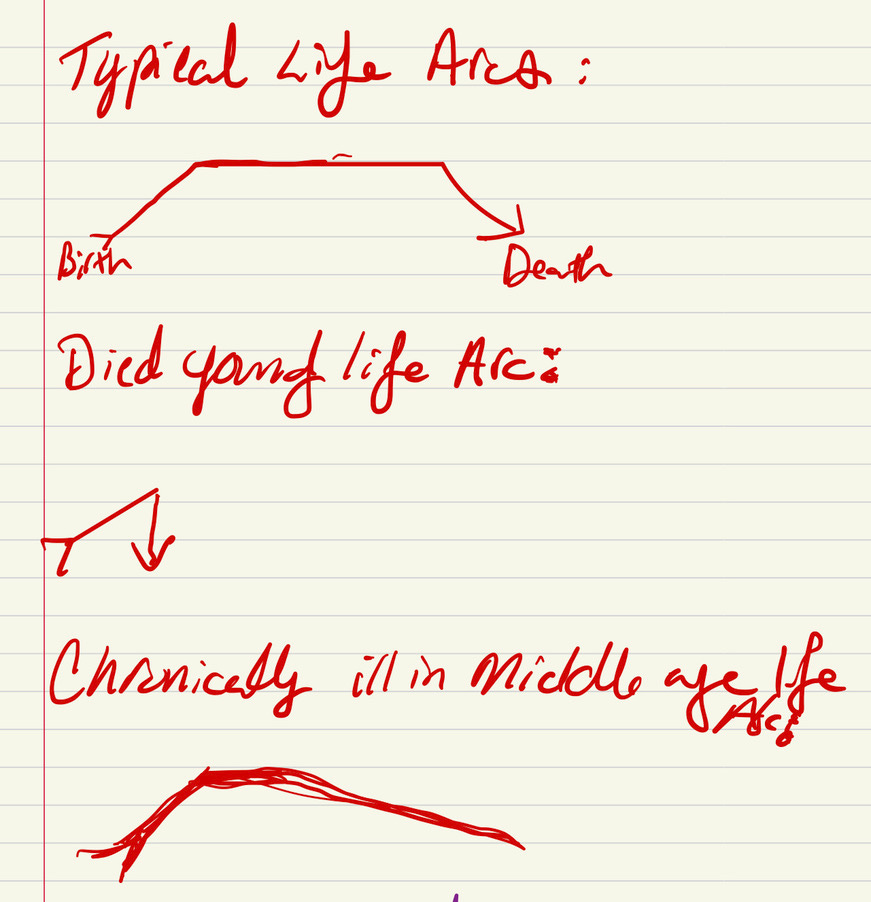 Typical Life Arcs:
Birth
Death
Died young life Arc:
Chronically ill in Middle age life
Arc: